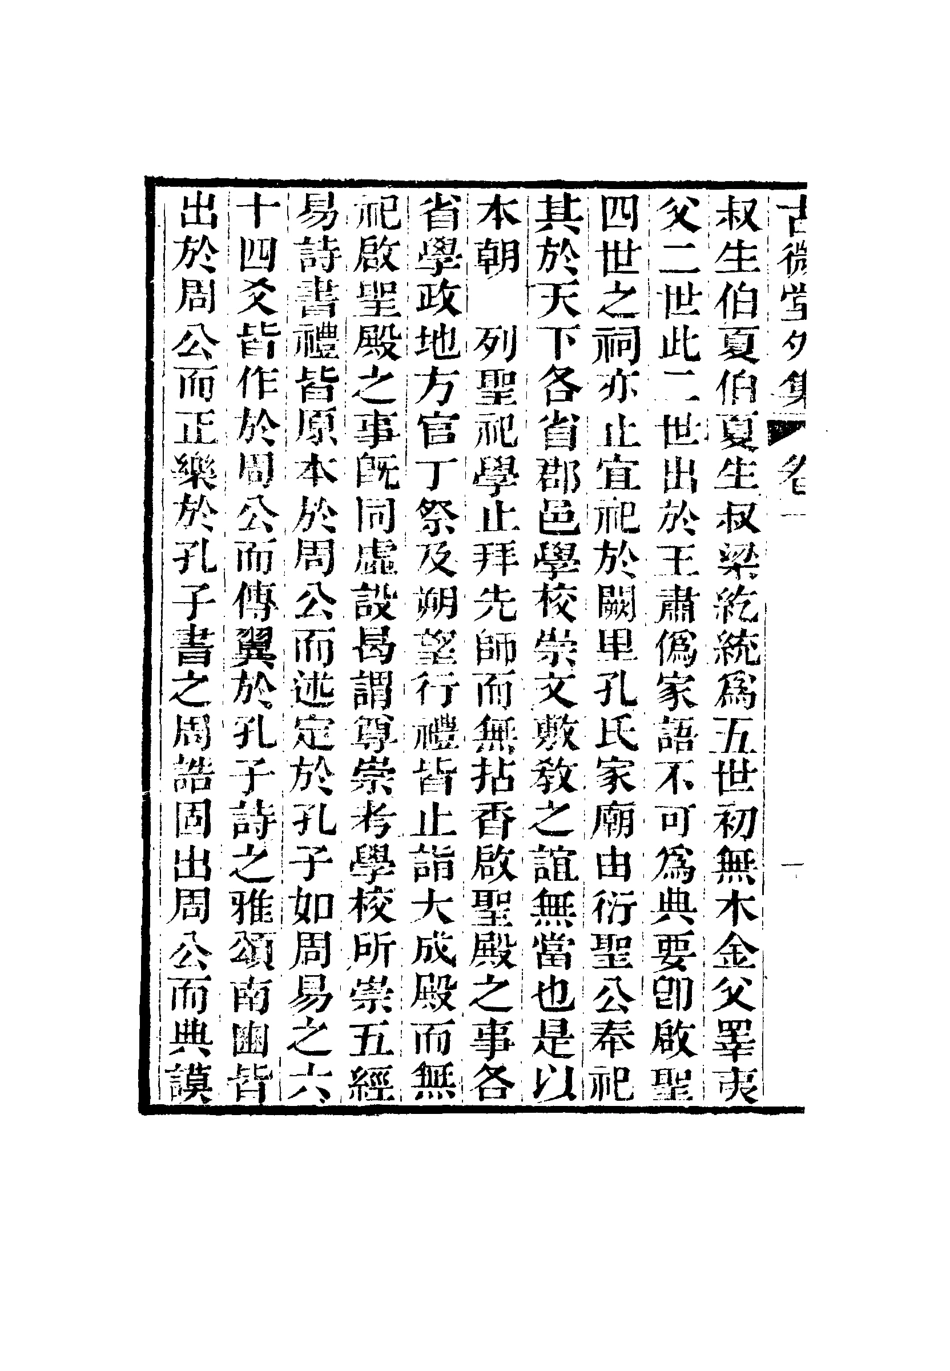 古微堂外集 卷一 一
叔生伯夏伯夏生叔梁紇統爲五世初無木金父睪夷
父二世此二世出於王肅僞家語不可爲典要卽啟聖
四世之祠亦止宜祀於闕里孔氏家廟由衍聖公奉祀
其於天下各省郡邑學校崇文敷敎之誼無當也是以
本朝　列聖祀學止拜先師而無拈香啟聖殿之事各
省學政地方官丁祭及朔望行禮皆止詣大成殿而無
祀啟聖殿之事旣同虛設曷謂尊崇考學校所崇五經
易詩書禮皆原本於周公而述定於孔子如周易之六
十四爻皆作於周公而傳翼於孔子詩之雅頌南豳皆
出於周公而正樂於孔子書之周誥固出周公而典謨